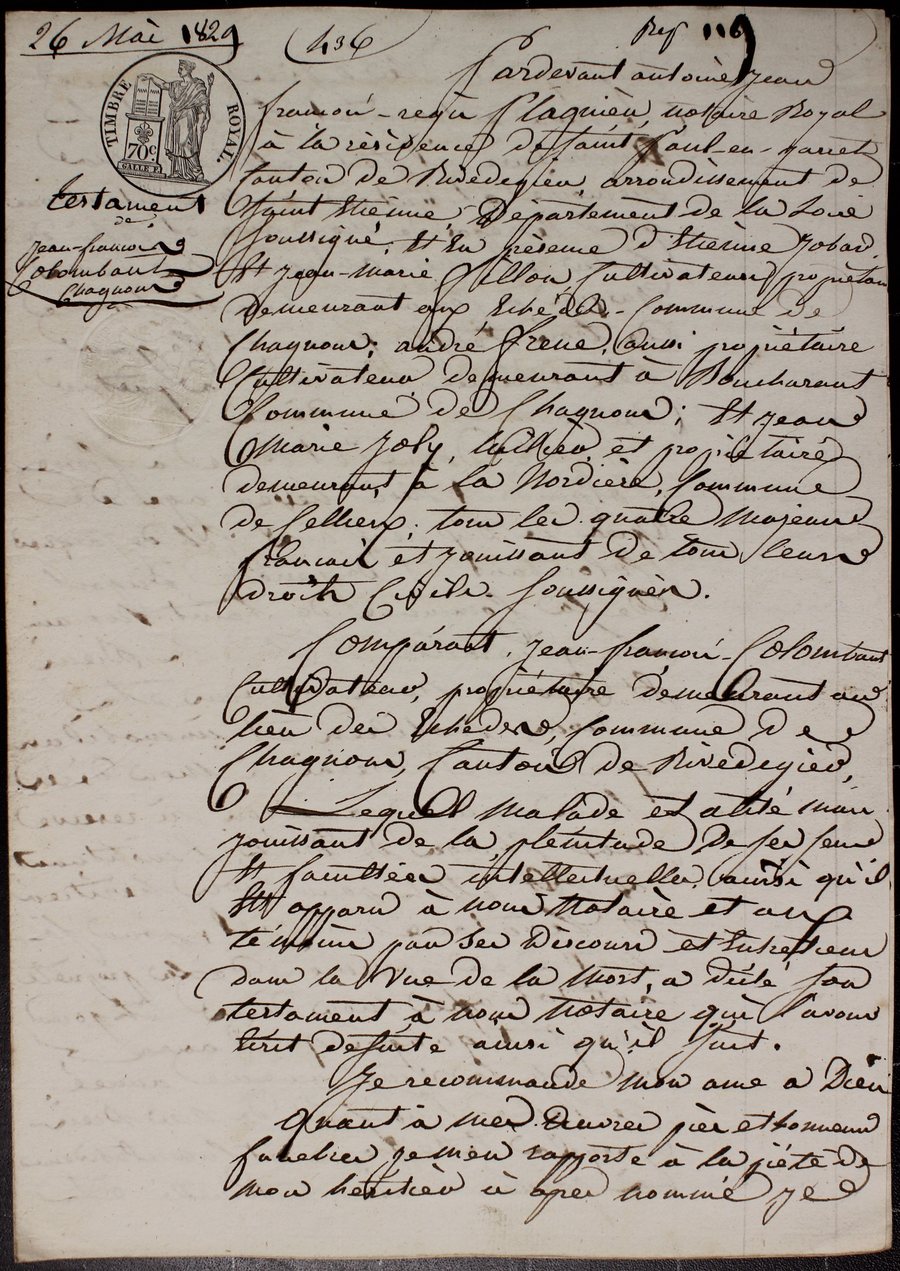 26 Mai 1829
436
Rep 116
TIMBRE ROYAL
70c
testament
de
Jean-françois
Colombant
Chagnon
Pardevant antoine Jean
françois-regis Plagnieu, notaire Royal
à la résidence de Saint Paul-en-jarret
Canton de Rivedegier, arrondissement de
Saint Etienne Département de la Loire
soussigné. Et En présence d'Etienne
Et Jean-marie Cultivateurs propriétaires
demeurant aux Commune de
Chagnon; andré frene, aussi propriétaire
Cultivateur demeurant à Boucharant
Commune de Chagnon; Et Jean
Marie Joly, et propriétaire
demeurant à la Nordière, Commune
de Cellieu. tous les quatre Majeurs
français et jouissant de tous leurs
droits Civils. soussignés.
Comparait, Jean-françois-Colombant
Cultivateur, propriétaire demeurant au
lieu des Commune de
Chagnon, Canton de Rivedegier,
Lequel malade et alité mais
jouissant de la plénitude De ses sens
Et facultées intellectuelles, ainsi qu'il
Est apparu à nous Notaire et aux
témoins par ses Discours et Entretiens
dans la Vue de la Mort, a dicté son
testament à nous Notaire qui l'avons
Ecrit de suite ainsi qu'il suit.
Je recommande mon ame a Dieu
Quant à mes Œuvres pies et honneurs
funebres je m'en rapporte à la piété de
mon héritier ci apres nommé je